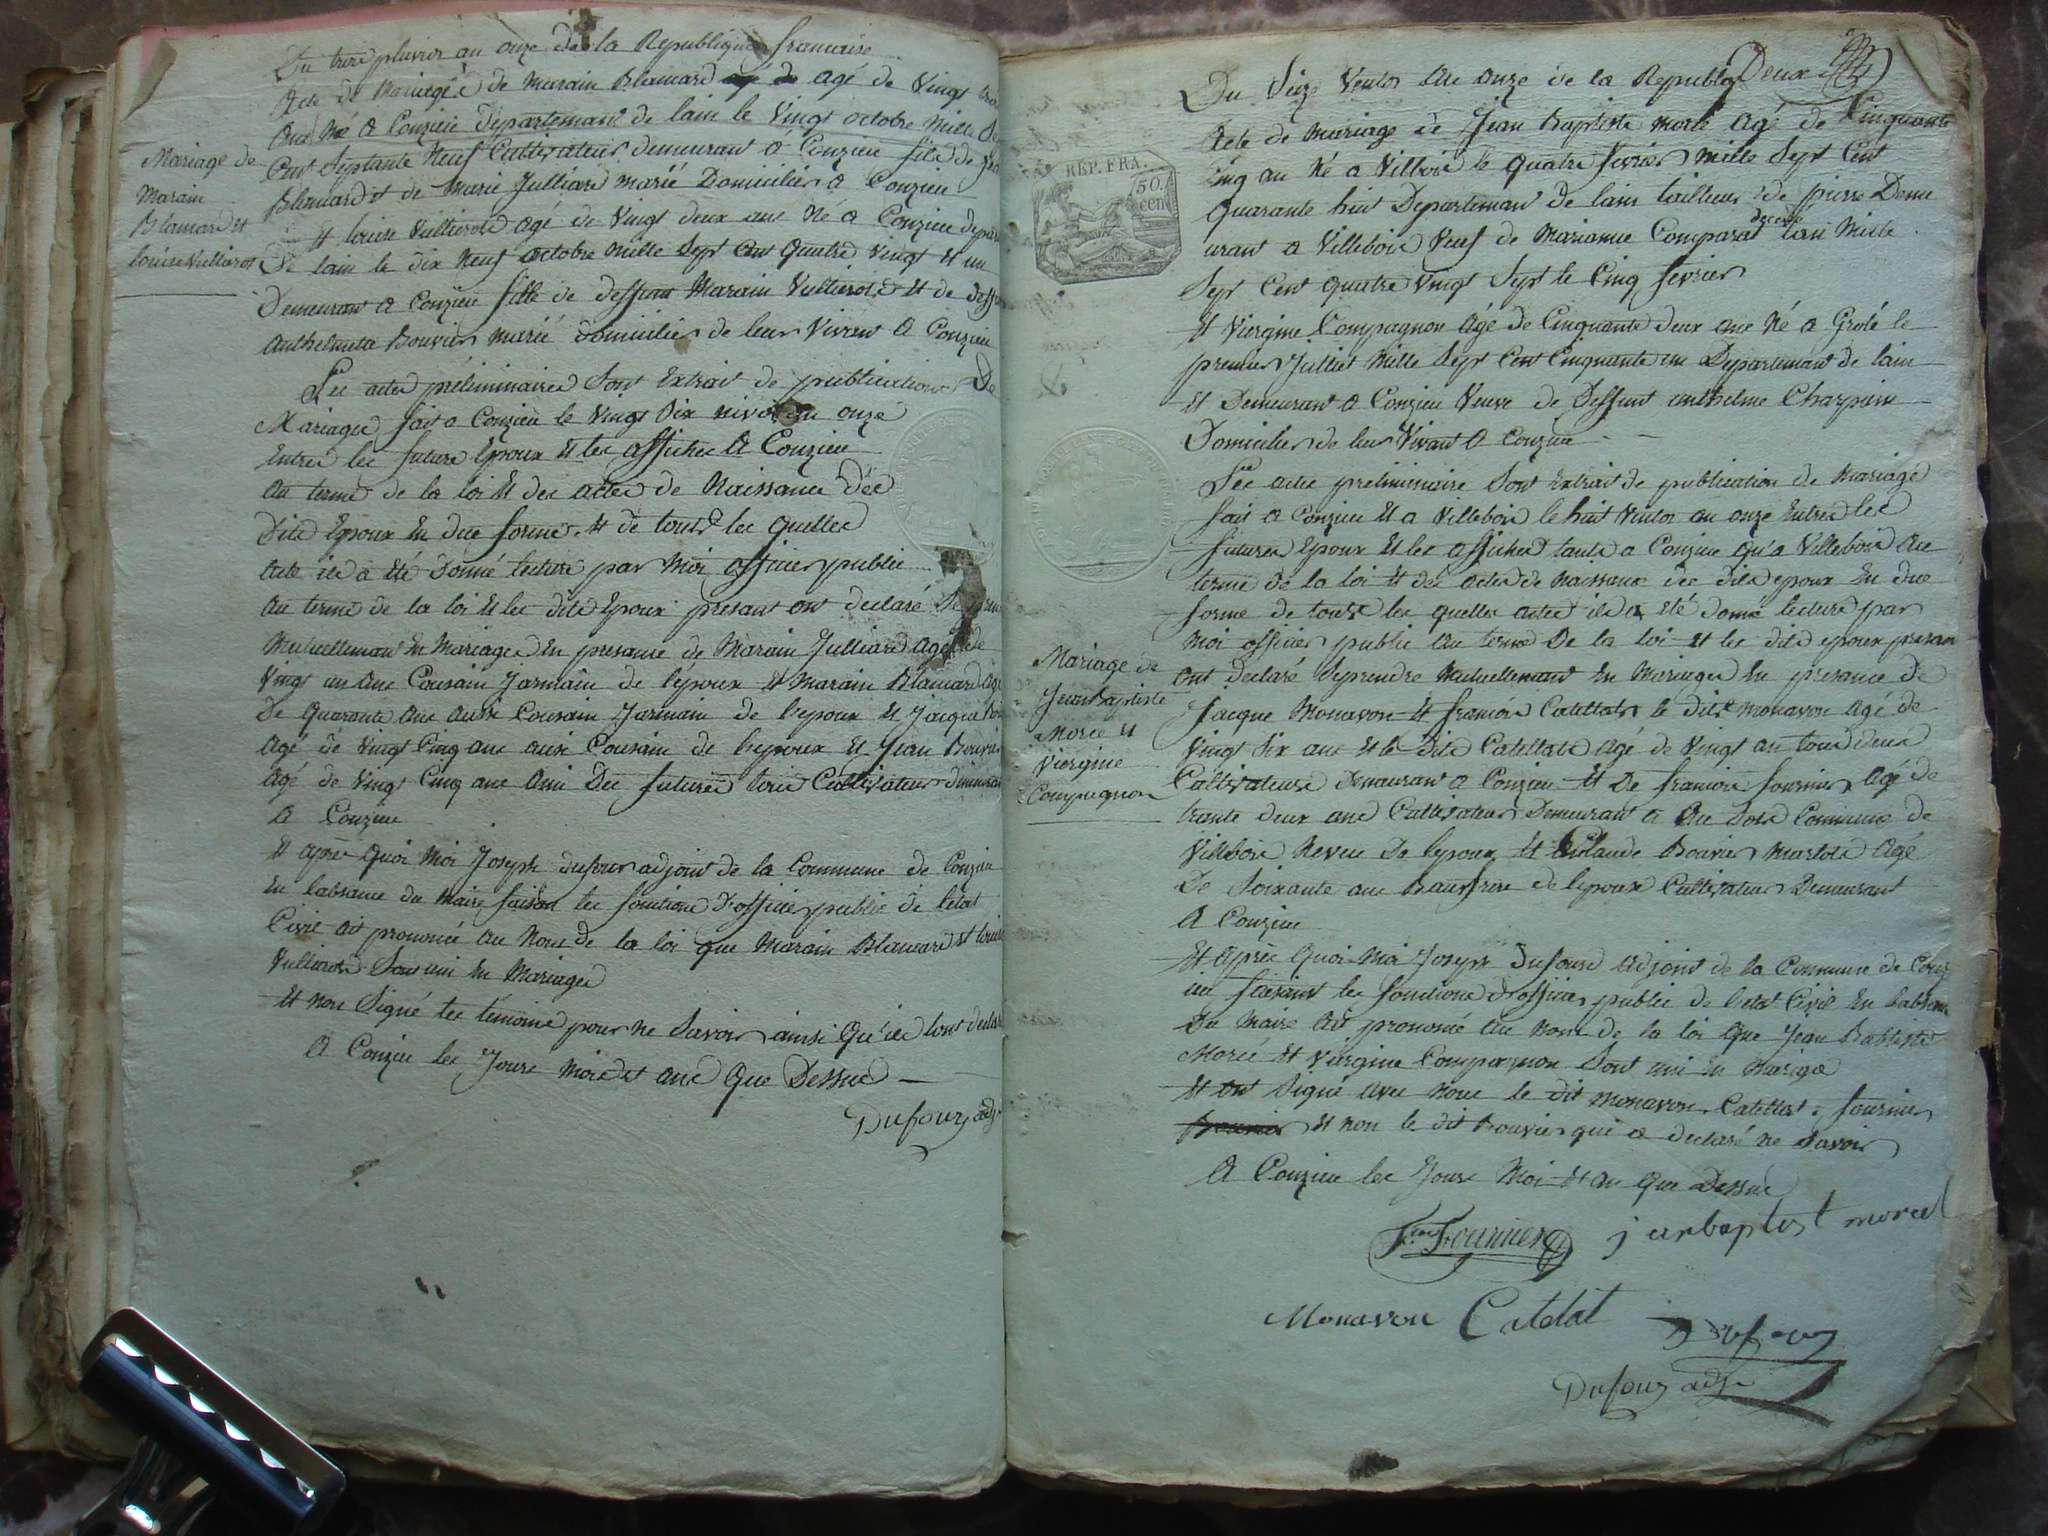 Du treize pluvios an onze de la Republique francaise
Acte de Mariage de Marain Blamard agé de Vingt trois
ans Né a Conzieu departemant de lain le Vingt octobre Mille Sept
Cent Septante Neuf Cultivateur demeurant á Conzieu fils de
Blamard et de Marie Julliard marié Domiciliés a Conzieu
Et louise Vullierod agé de Vingt deux ans Né a Conzieu depar
De lain le dix Neuf octobre Mille Sept Cent Quatre Vingt et un
Demeurant a Conzieu fille de deffunt Marain Vullierod et de deffun
Anthelmeta Bouvier marié domiciliés de leur Vivant a Conzieu
Les actes préliminaires Sont Extrait de publications De
Mariages fait a Conzieu le Vingt Six nivos an onze
Entre les future Epoux et les affiches A Conzieu
Au terme de la loi Et des actes de Naissance dés
Dits Epoux En due forme Et de touts les quelles
acte ils a été Donné lecture par Moi officier public
Au terme de la loi Et les dits Epoux present ont declaré Se prendre
Mutuellemant En Mariages En presance de Marain Julliard Agé de
Vingt un ans Cousain Jarmain de lépoux Et Marain Blamard agé
De Quarante ans aussi Cousain Jarmain de l'epoux Et Jacque
Agé de Vingt Cinq ans ausi Cousain de l'epoux Et Jean Bouvier
Agé de Vingt Cinq ans Ami Des futures tous Cultivateurs demeurant
A Conzieu
Et apre Quoi Moi Joseph dufour adjoint de la Commune de Conzieu
En labsance du Maire faisan les fonctions d'officier public de l'etat
Civil ait prononcé au Nom de la loi que Marain Blamard et louise
Vullierod Son uni En Mariages
Et non Signé les temoins pour ne Savoir ainsi Qu'ils lont declaré
A Conzieu les Jours Mois et ans Que Dessus
Dufour adj
Mariage de
Marain
Blamard et
louise Vullierod
Deux
Du Seize Ventos An onze de la Republiq
Acte de Mariage de Jean Baptiste morel Agé de Cinquante
Cinq an Né a Villbois le Quatre fevrier Mille Sept Cent
Quarante huit Departemant de lain tailleur de pierre Deme
urant a Villebois Veuf de Marianne Comparat decedé lan Mille
Sept Cent Quatre Vingt Sept le Cinq fevrier
Et Viergine Compagnon Agé de Cinquante deux ans Né a Grolé le
premier Julliet Mille Sept Cent Cinquante un Departemant de lain
Et Demeurant a Conzieu Veuve de Deffunt anthelme Charpine
Domiciliés de leur Vivant A Conzieu
Les actes preliminaire Sont Extrait de publication de Mariage
fait a Conzieu Et a Villebois le huit Ventos an onze Entre les
futures Epoux Et les affiches tants a Conzieu qu'a Villebois Au
terme de la loi Et des actes de Naissance des dits epoux En due
forme de touts les quelles actes ils a été donné lecture par
Moi officier public Au terme De la loi Et les dits epoux presan
ont declaré Seprendre Mutuellemant En Mariages En presance de
Jacque Monavon Et francois Catellats le dits Monavon agé de
Vingt Six ans Et le dits Catellats agé de Vingt an tous deux
Cultivateurs Demeurant a Conzieu Et De francois fournier Agé de
trante deux ans Cultivateur Demeurant a Commune de
Villebois Neveu De lepoux Et Claude Bouvier Agé
De Soixante ans Baufrere de lepoux Cultivateur Demeurant
A Conzieu
Et après Quoi Moi Joseph Dufour Adjoint de la Commune de Conz
ieu faisant les fonctions d'officier public de letat Civil En labsan
Du Maire ait prononcé Au Nom de la loi Que Jean Baptiste
Morel Et Viergine Compagnon Sont uni En Mariage
Et ont Signé avec Nous le dit Monavon Catellat fournier
Bouvier Et non le dit Bouvier qui a declaré ne Savoir
A Conzieu les Jours Moi Et an Que Dessus
Mariage de
Jean Baptiste
Morel et
Viergine
Compagnon
REP. FRA.
50.
cen
Fournier
janbaptist morel
Monavon
Catelat
Dufour
Dufour adj